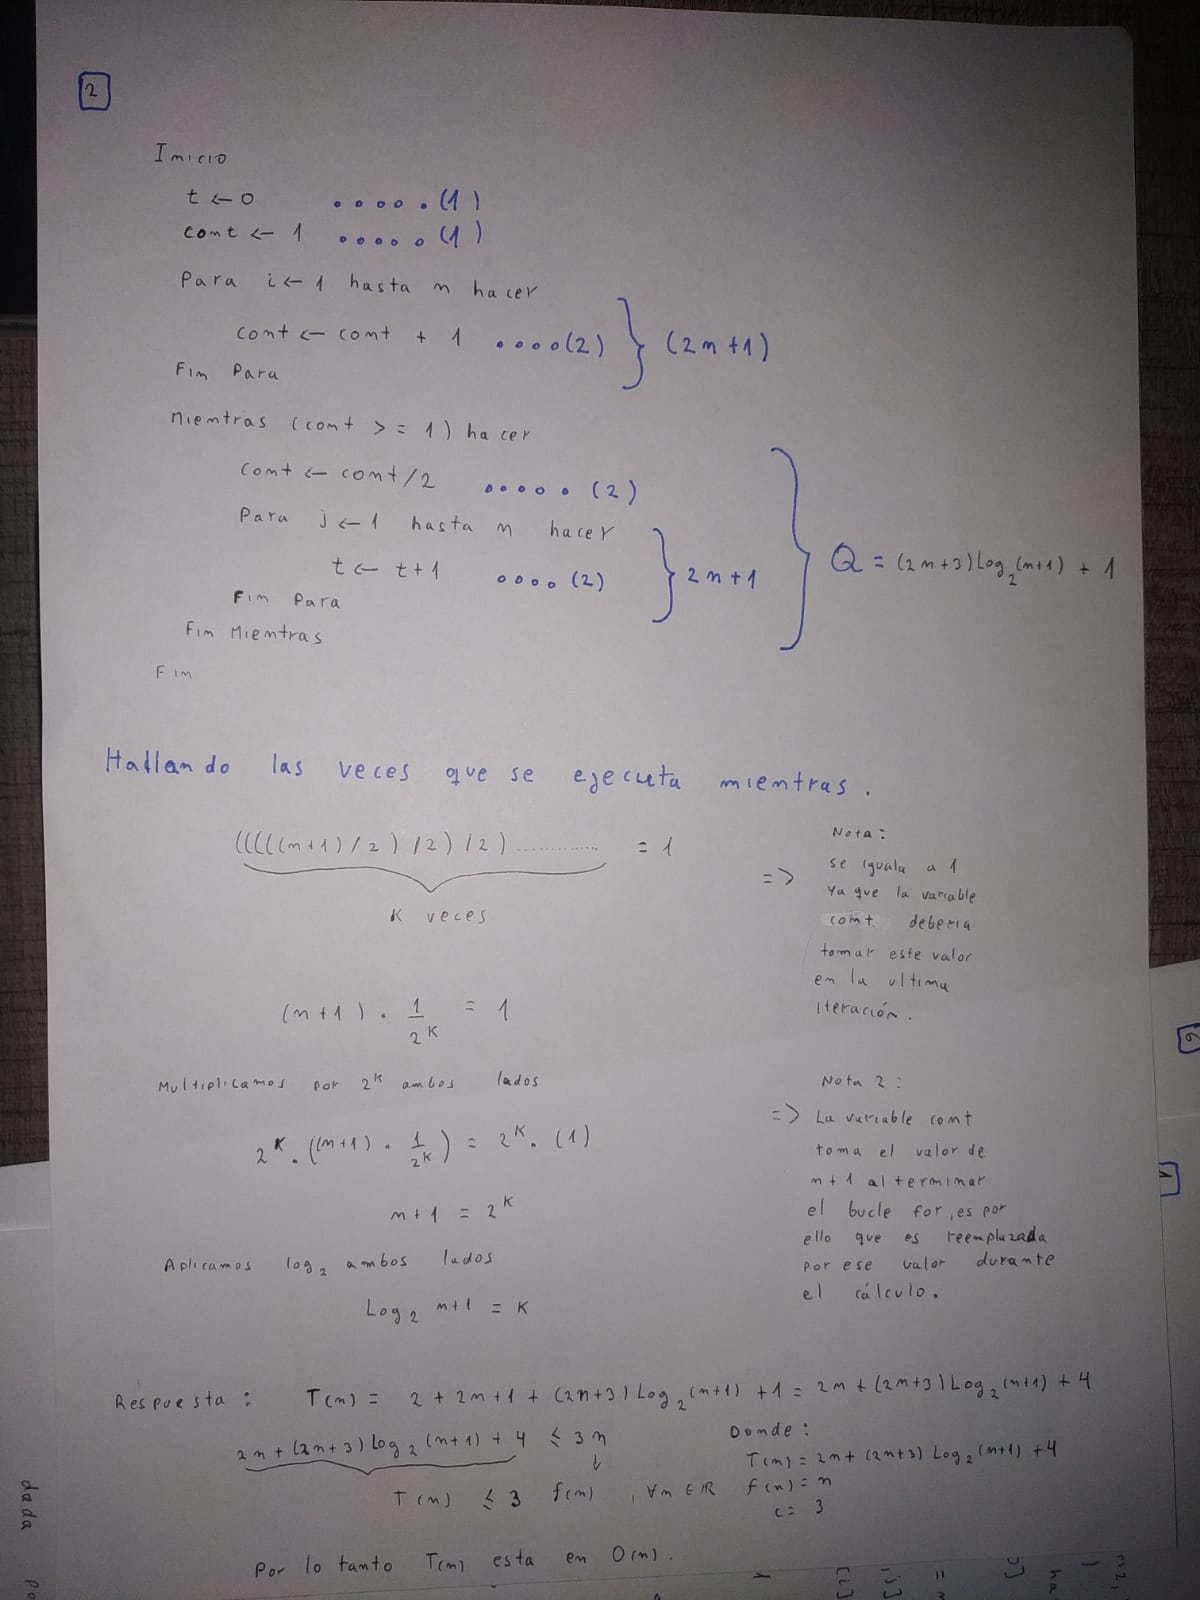 2
Inicio
t ← 0 ..... (1)
cont ← 1 ..... (1)
Para i ← 1 hasta n hacer
cont ← cont + 1 .... (2) } (2n+1)
Fin Para
Mientras (cont >= 1) hacer
cont ← cont/2 ..... (2)
Para j ← 1 hasta n hacer
t ← t+1 .... (2) } 2n+1 } Q = (2n+3) Log₂(n+1) + 1
Fin Para
Fin Mientras
Fin
Hallando las veces que se ejecuta mientras.
(((((n+1)/2)/2)/2)............ = 1
K veces
=> Nota:
se iguala a 1
Ya que la variable
cont. deberia
tomar este valor
en la ultima
iteración.
(n+1) . 1/2^K = 1
Multiplicamos por 2^K ambos lados
2^K . ((n+1) . 1/2^K) = 2^K . (1)
n+1 = 2^K
Aplicamos log₂ ambos lados
Log₂ n+1 = K
Nota 2:
=> La variable cont
toma el valor de
n+1 al terminar
el bucle for, es por
ello que es reemplazada
por ese valor durante
el cálculo.
Respuesta: T(n) = 2 + 2n+1 + (2n+3) Log₂(n+1) + 1 = 2n + (2n+3) Log₂(n+1) + 4
2n + (2n+3) log₂(n+1) + 4 ≤ 3n
T(n) ≤ 3 f(n), ∀n ∈ IR
Donde:
T(n) = 2n + (2n+3) Log₂(n+1) + 4
f(n) = n
c = 3
Por lo tanto T(n) esta en O(n).
dada